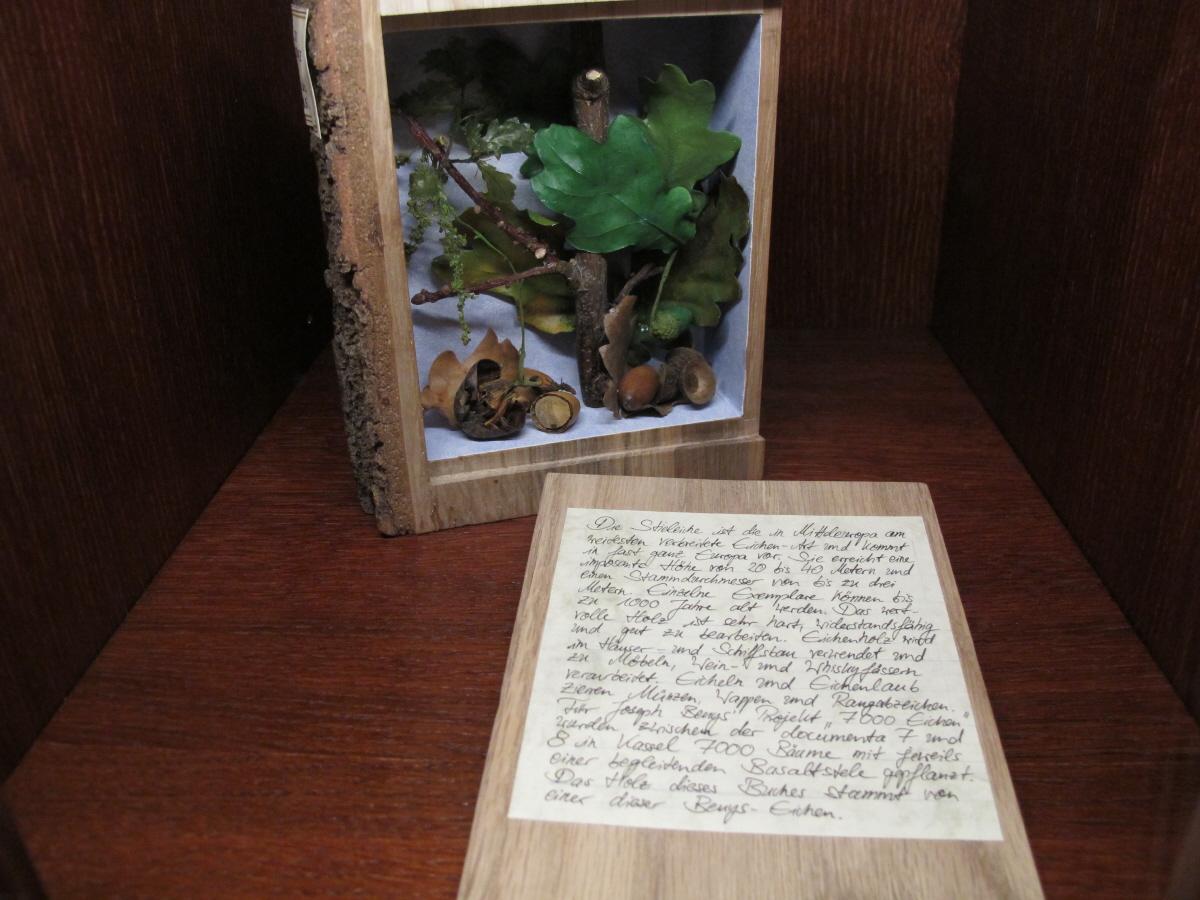 Die Stieleiche ist die in Mitteleuropa am
weitesten verbreitete Eichen-Art und kommt
in fast ganz Europa vor. Sie erreicht eine
imposante Höhe von 20 bis 40 Metern und
einen Stammdurchmesser von bis zu drei
Metern. Einzelne Exemplare können bis
zu 1000 Jahre alt werden. Das wert-
volle Holz ist sehr hart, widerstandsfähig
und gut zu bearbeiten. Eichenholz wird
im Häuser- und Schiffsbau verwendet und
zu Möbeln, Wein- und Whiskyfässern
verarbeitet. Eicheln und Eichenlaub
zieren Münzen, Wappen und Rangabzeichen.
Für Joseph Beuys' Projekt „7000 Eichen"
wurden zwischen der documenta 7 und
8 in Kassel 7000 Bäume mit jeweils
einer begleitenden Basaltstele gepflanzt.
Das Holz dieses Buches stammt von
einer dieser Beuys-Eichen.